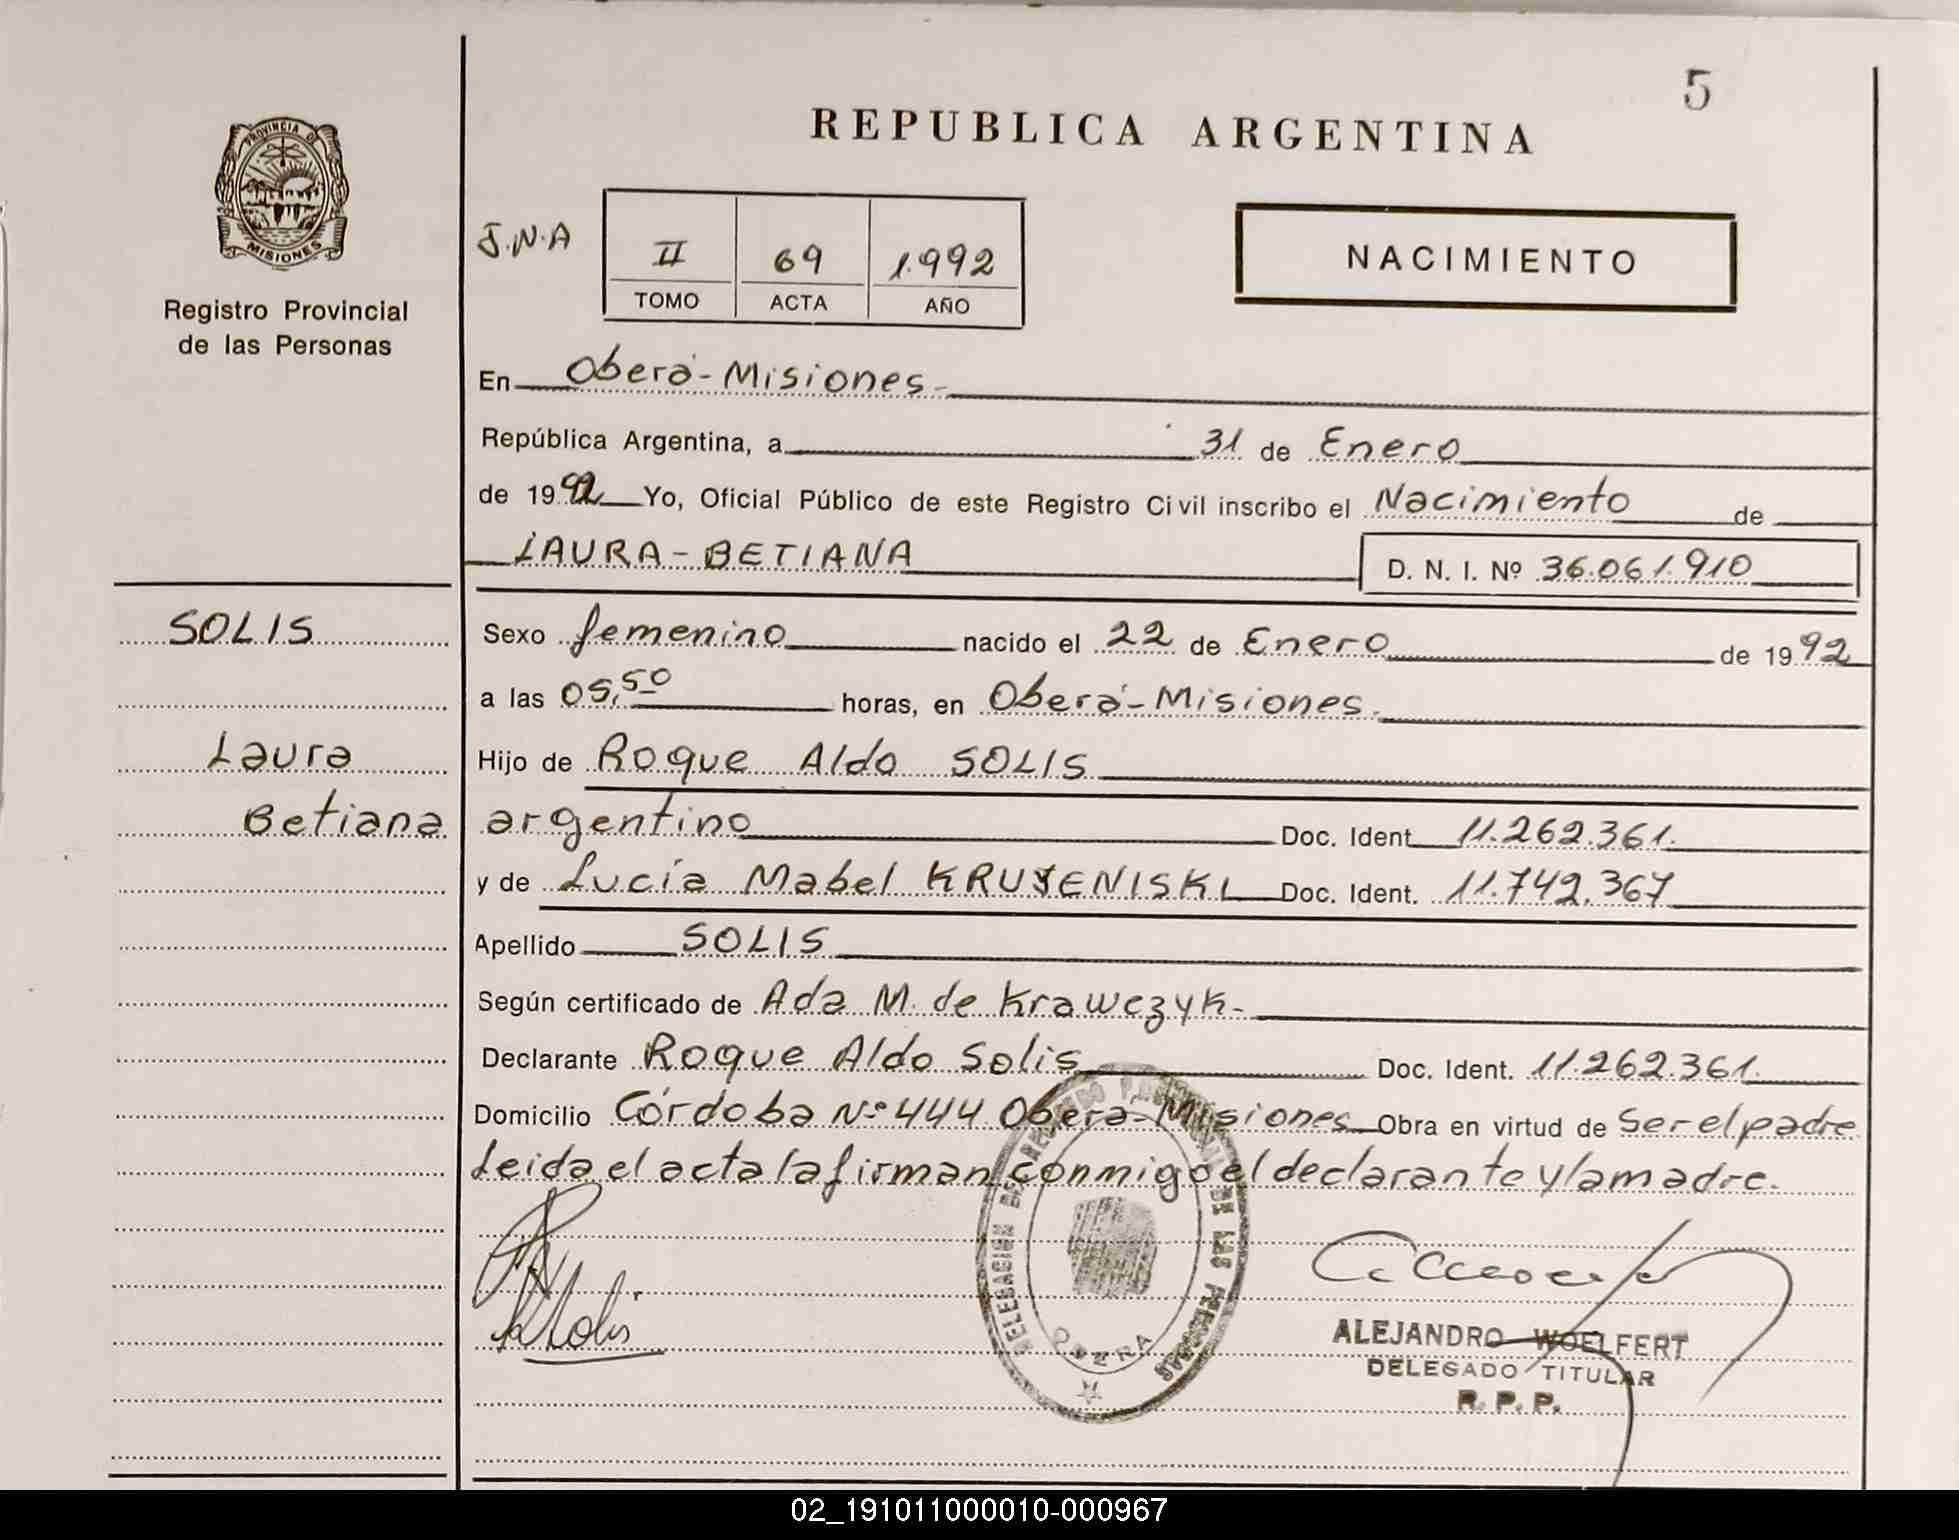 5
REPUBLICA ARGENTINA
PROVINCIA DE
MISIONES
Registro Provincial
de las Personas
J.N.A
II 69 1.992
TOMO ACTA AÑO
NACIMIENTO
En Oberá-Misiones-
República Argentina, a 31 de Enero
de 1992 Yo, Oficial Público de este Registro Civil inscribo el Nacimiento de
LAURA-BETIANA D. N. I. Nº 36.061.910
SOLIS
Laura
Betiana
Sexo femenino nacido el 22 de Enero de 1992
a las 05,50 horas, en Oberá-Misiones.
Hijo de Roque Aldo SOLIS
argentino Doc. Ident. 11.262.361.
y de Lucía Mabel Doc. Ident. 11.742.367
Apellido SOLIS
Según certificado de Ada M. de Krawczyk-
Declarante Roque Aldo Solis Doc. Ident. 11.262.361.
Domicilio Córdoba Nº 444 Oberá-Misiones Obra en virtud de Ser el padre
Leida el acta la firman conmigo el declarante y la madre.
DELEGACION DEL REGISTRO PROVINCIAL DE LAS PERSONAS
OBERA
ALEJANDRO WOELFERT
DELEGADO TITULAR
R. P. P.
02_191011000010-000967